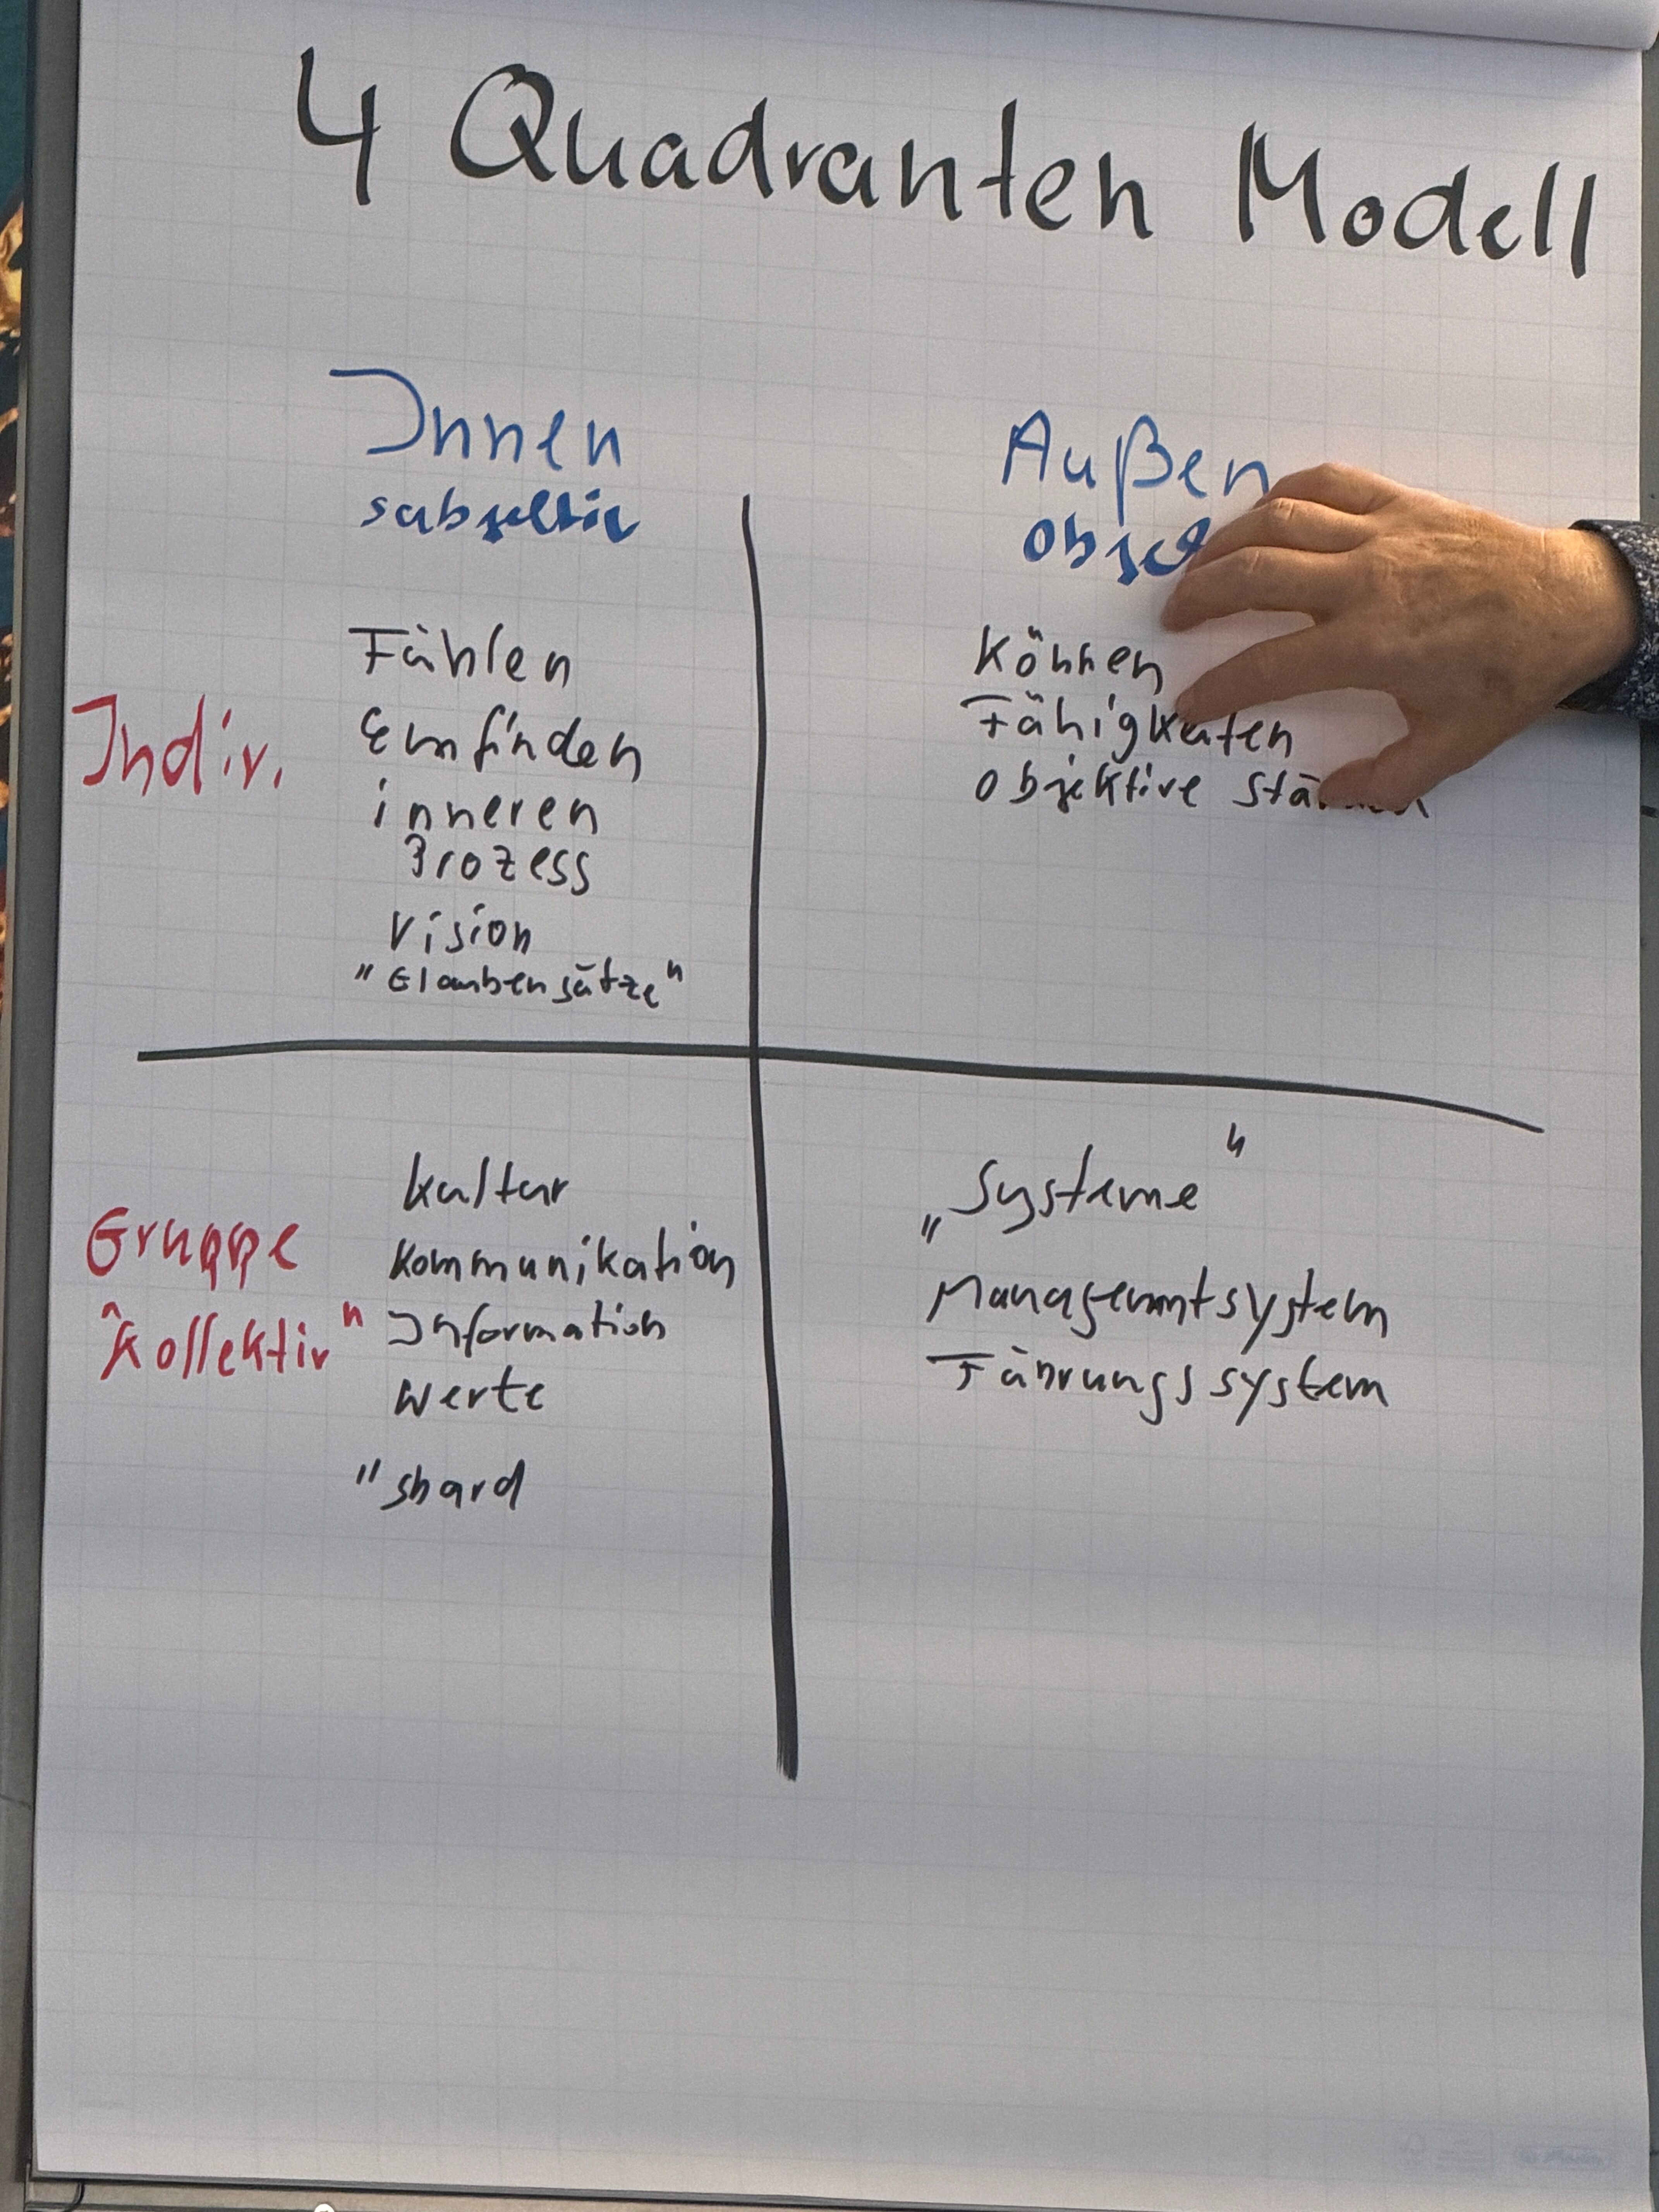 4 Quadranten Modell
Innen
subjektiv
Außen
Indiv.
Fühlen
Emfinden
inneren
Prozess
Vision
"Glaubenssätze"
Können
Fähigkeiten
objektive
Gruppe
"Kollektiv"
Kultur
Kommunikation
Information
Werte
"shard
„Systeme"
Managemntsystem
Führungssystem